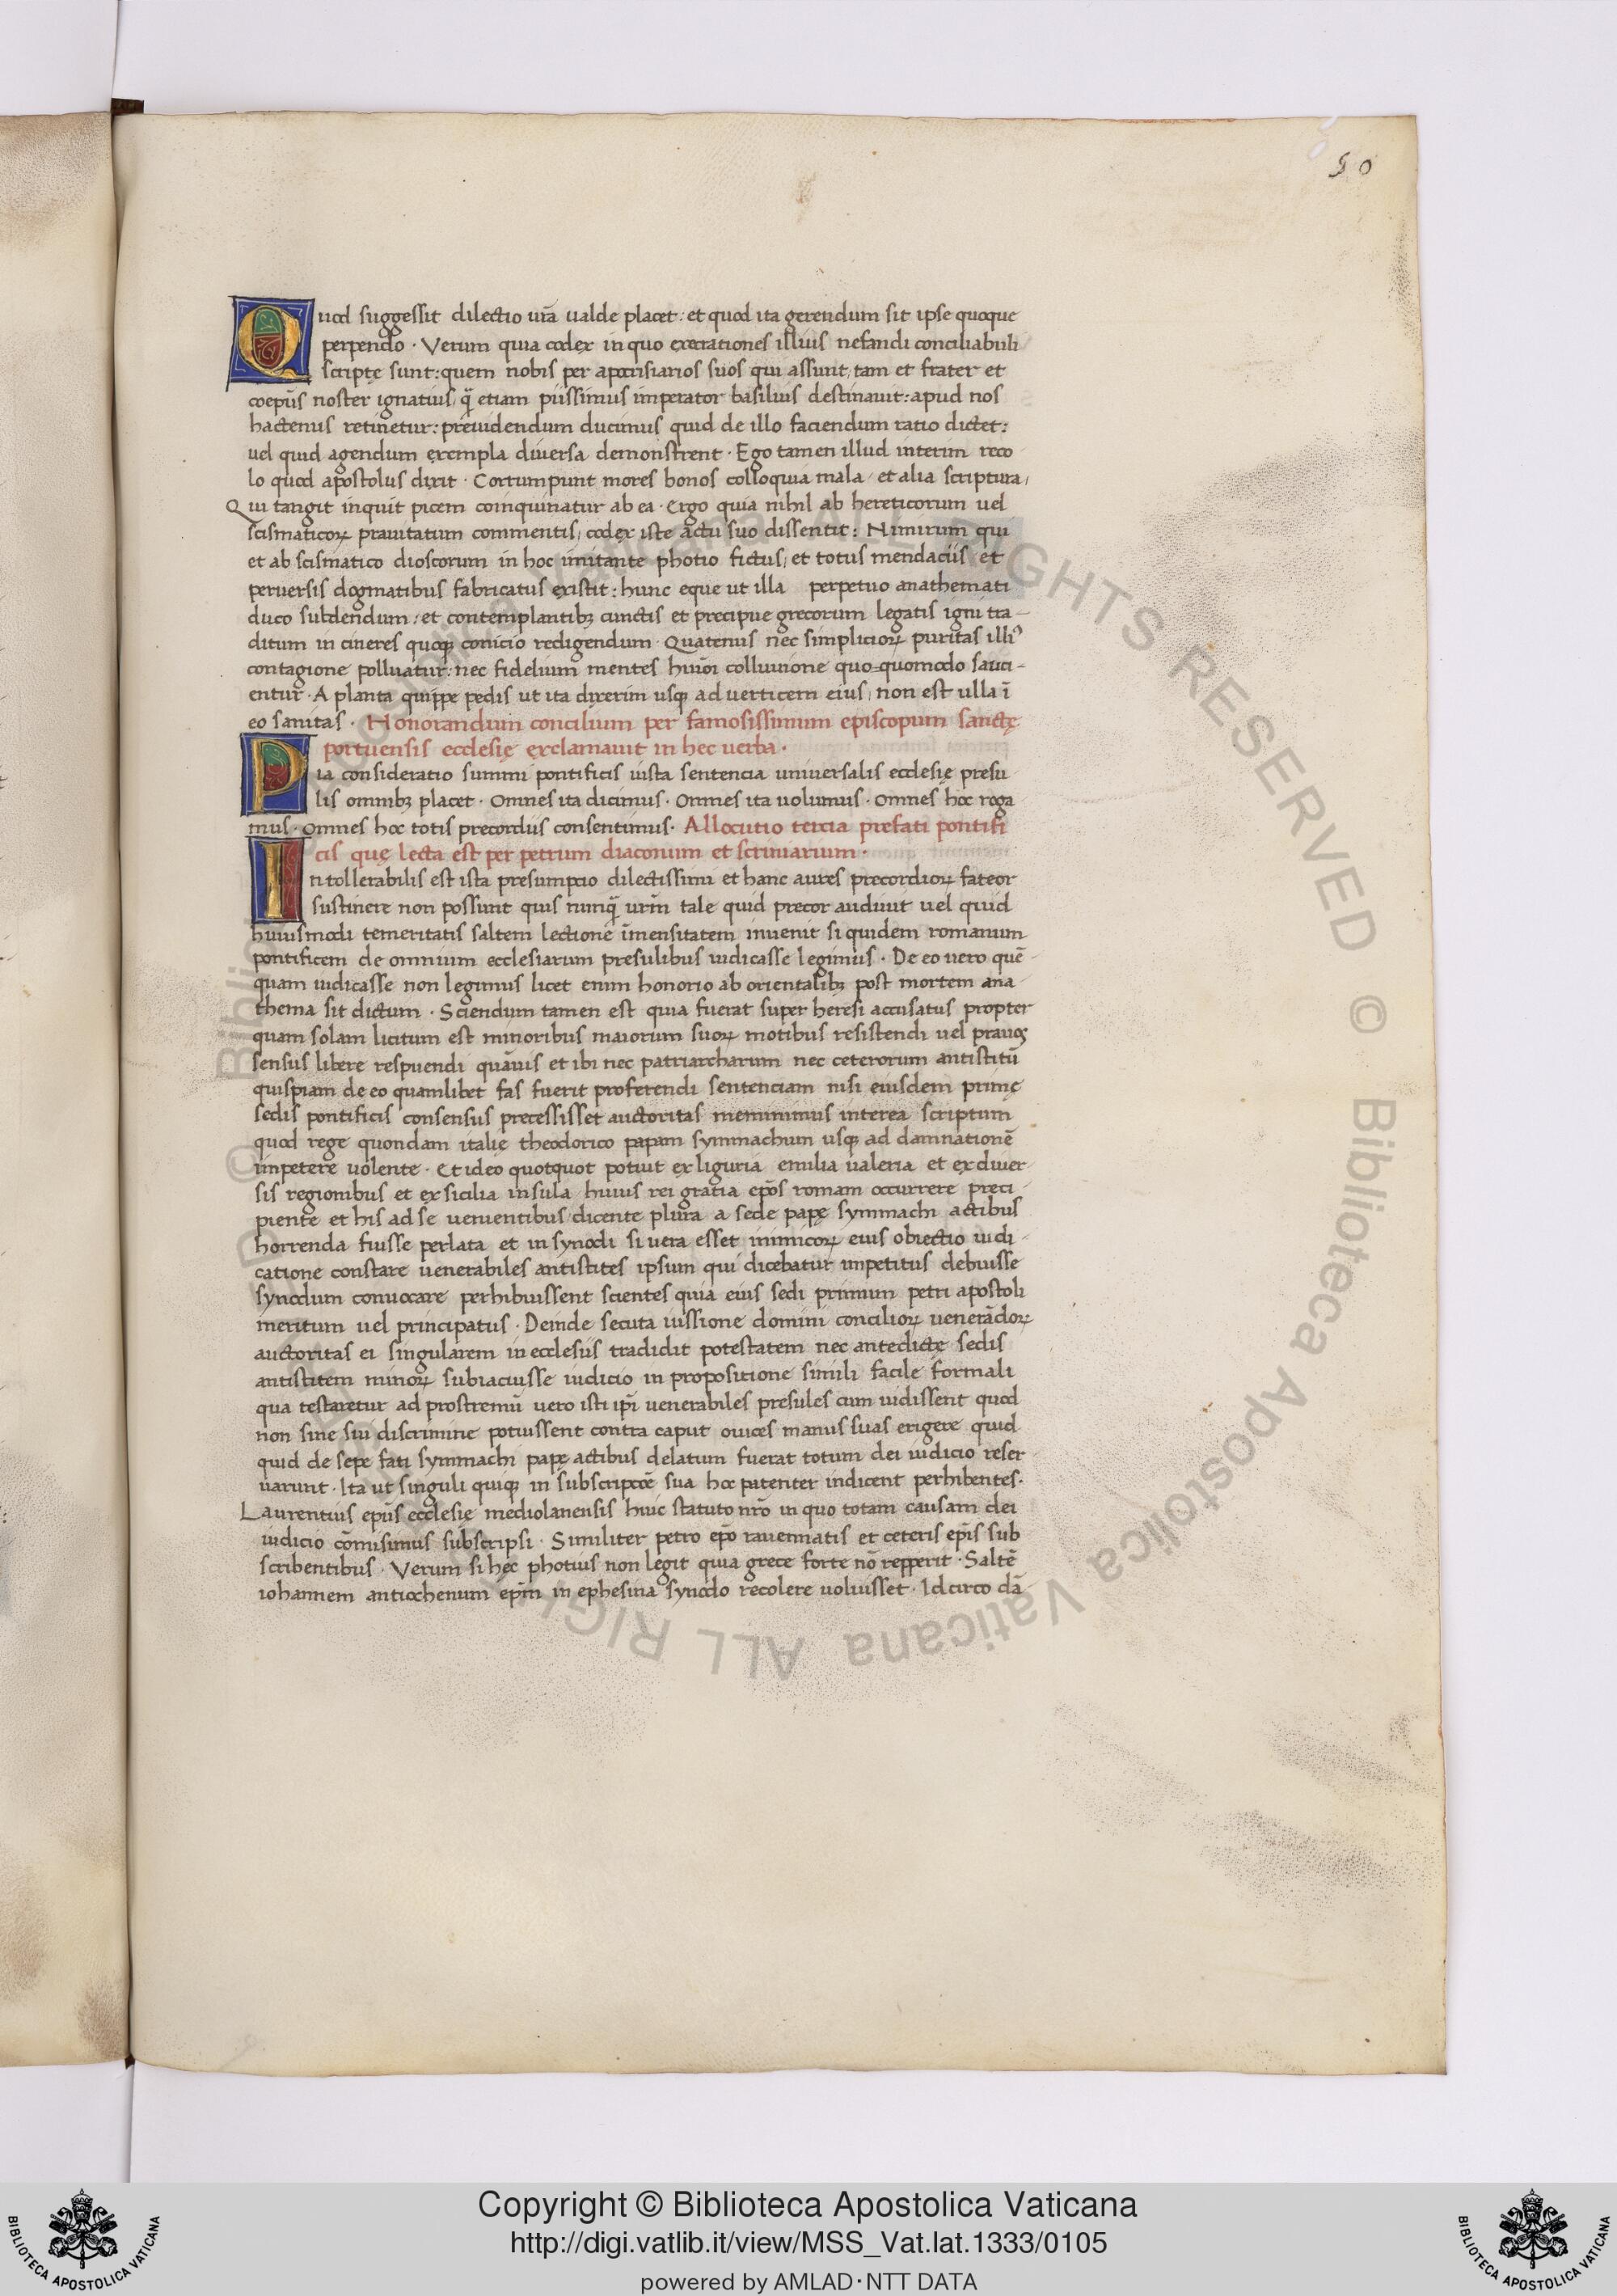 50
Quod suggessit dilectio urā ualde placet : et quod ita gerendum sit ipse quoque
perpendo · Verum quia codex in quo execrationes illius nefandi conciliabuli
scriptę sunt : quem nobis per apocrisiarios suos qui assunt, tam et frater et
coepūs noster ignatius, q̄ etiam piissimus imperator basilius destinauit : apud nos
hactenus retinetur : preuidendum ducimus quid de illo faciendum ratio dictet :
uel quid agendum exempla diuersa demonstrent · Ego tamen illud interim reco
lo quod apostolus dixit · Corrumpunt mores bonos colloquia mala, et alia scriptura,
Qui tangit inquit picem coinquinatur ab ea · Ergo quia nihil ab hereticorum uel
scismaticoꝝ prauitatum commentis, codex iste actu suo dissentit : Nimirum qui
et ab scismatico dioscorum in hoc imitante photio fictus, et totus mendaciis et
peruersis dogmatibus fabricatus existit : hunc eque ut illa perpetuo anathemati
duco subdendum : et contemplantibꝫ cunctis et precipue grecorum legatis igni tra-
ditum in cineres quoqꝫ conicio redigendum · Quatenus nec simplicioꝝ puritas illiꝰ
contagione polluatur : nec fidelium mentes huiōi colluuione quo-quomodo sauci-
entur · A planta quippe pedis ut ita dixerim usqꝫ ad uerticem eius, non est ulla ī
eo sanitas · Honorandum concilium per famosissimum episcopum sanctę
portuensis ecclesię exclamauit in hec uerba ·
Pia consideratio summi pontificis iusta sentencia uniuersalis ecclesię presu
lis omnibꝫ placet · Omnes ita dicimus · Omnes ita uolumus · Omnes hoc roga
mus · Omnes hoc totis precordiis consentimus · Allocutio tercia prefati pontifi
cis quę lecta est per petrum diaconum et scriniarium ·
Intollerabilis est ista presumpcio dilectissimi et hanc aures precordioꝝ fateor
sustinere non possunt quis nunq̄ urm̄ tale quid precor audiuit uel quid
huiusmodi temeritatis saltem lectione īmensitatem inuenit si quidem romanum
pontificem de omnium ecclesiarum presulibus iudicasse legimus · De eo uero quē-
quam iudicasse non legimus licet enim honorio ab orientalibꝫ post mortem ana
thema sit dictum · Sciendum tamen est quia fuerat super heresi accusatus propter
quam solam licitum est minoribus maiorum suoꝝ motibus resistendi uel prauos
sensus libere respuendi quāuis et ibi nec patriarcharum nec ceterorum antistitū
quispiam de eo quamlibet fas fuerit proferendi sentenciam nisi eiusdem primę
sedis pontificis consensus precessisset auctoritas meminimus interea scriptum
quod rege quondam italię theodorico papam symmachum usqꝫ ad damnationē
impetere uolente · Et ideo quotquot potuit ex liguria emilia ualeria et ex diuer-
sis regionibus et ex sicilia insula huius rei gratia epōs romam occurrere preci-
piente et his ad se uenientibus dicente plura a sede papę symmachi actibus
horrenda fuisse perlata et in synodi si uera esset inimicoꝝ eius obiectio iudi-
catione constare uenerabiles antistites ipsum qui dicebatur impetitus debuisse
synodum conuocare perhibuissent scientes quia eius sedi primum petri apostoli
meritum uel principatus · Deinde secuta iussione domini concilioꝝ uenerādoꝝ
auctoritas ei singularem in ecclesiis tradidit potestatem nec antedictę sedis
antistitem minoꝝ subiacuisse iudicio in propositione simili facile formali
qua testaretur ad prostremū uero isti ipī uenerabiles presules cum uidissent quod
non sine sui discrimine potuissent contra caput ouices manus suas erigere quid
quid de sepe fati symmachi papę actibus delatum fuerat totum dei iudicio reser-
uarunt · Ita ut singuli quiqꝫ in subscripcōe sua hoc patenter indicent perhibentes ·
Laurentius epūs ecclesię mediolanensis huic statuto nrō in quo totam causam dei
iudicio cōmisimus subscripsi · Similiter petro epō rauennatis et ceteris epīs sub
scribentibus · Verum si hęc photius non legit quia grece forte nō repperit · Saltē
iohannem antiochenum epm̄ in ephesina synodo recolere uoluisset · Idcirco dā-
© Biblioteca Apostolica Vaticana ALL RIGHTS RESERVED © Biblioteca Apostolica Vaticana ALL RIGHTS RESERVED
Copyright © Biblioteca Apostolica Vaticana
http://digi.vatlib.it/view/MSS_Vat.lat.1333/0105
powered by AMLAD·NTT DATA
BIBLIOTECA APOSTOLICA VATICANA
BIBLIOTECA APOSTOLICA VATICANA